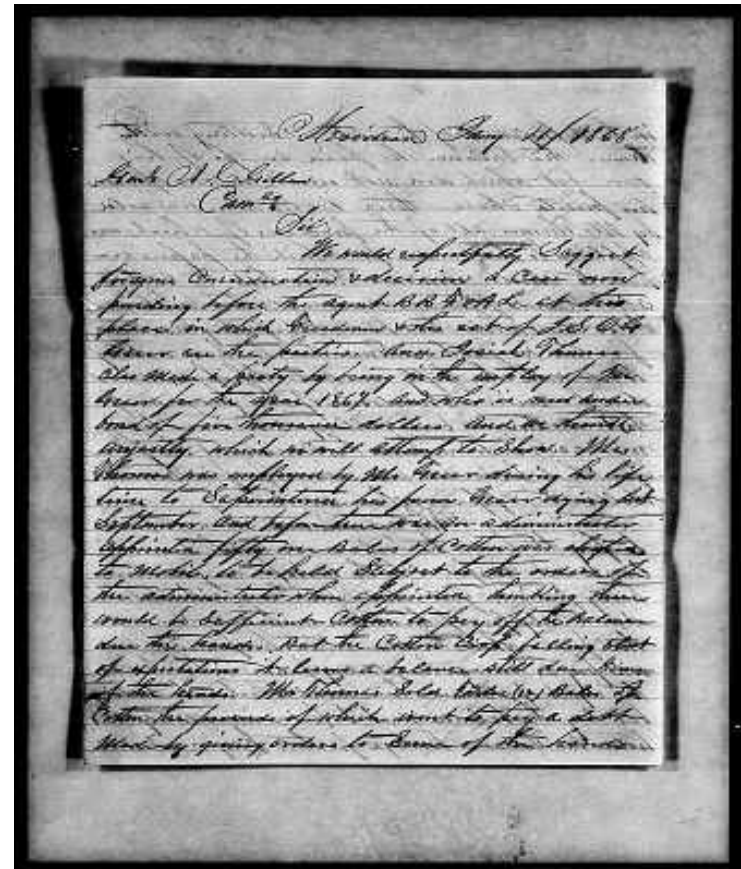 Meridian Jany 1868
Genl A. C. Gillem
Sir
We would respectfully Suggest
for your Consideration & decision a Case now
pending before the agent B R F & A L at this
place, in which Freedmen & the est of
Greer are the parties. And Josiah Thomas
also made a party by being in the employ of Mr
Greer for the year 1867. And who is now under
bond of five thousand dollars. And we think
unjustly, which we will attempt to Show. Mr
Thomas was employed by Mr Greer during his life
time to Superintend his farm Greer dying last
September. And before there was an administrator
appointed fifty one Bales of Cotton was shiped
to Mobile, to be held Subject to the order of
the administrator when appointed thinking there
would be Sufficient Cotton to pay off the balance
due the hands. But the Cotton Crop falling Short
of expectations it leaves a balance still due Some
of the hands. Mr Thomas Sold twelve (12) Bales of
Cotton the proceeds of which went to pay a debt
Made by giving orders to Some of the hands